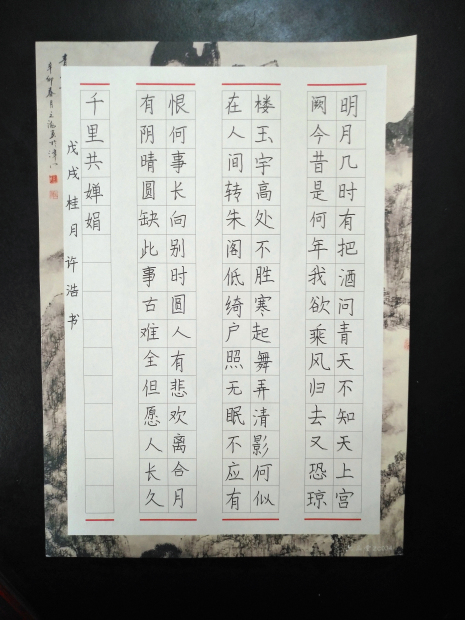 明月几时有把酒问青天不知天上宫
阙今昔是何年我欲乘风归去又恐琼
楼玉宇高处不胜寒起舞弄清影何似
在人间转朱阁低绮户照无眠不应有
恨何事长向别时圆人有悲欢离合月
有阴晴圆缺此事古难全但愿人长久
千里共婵娟
戊戌桂月许浩书
辛卯春月